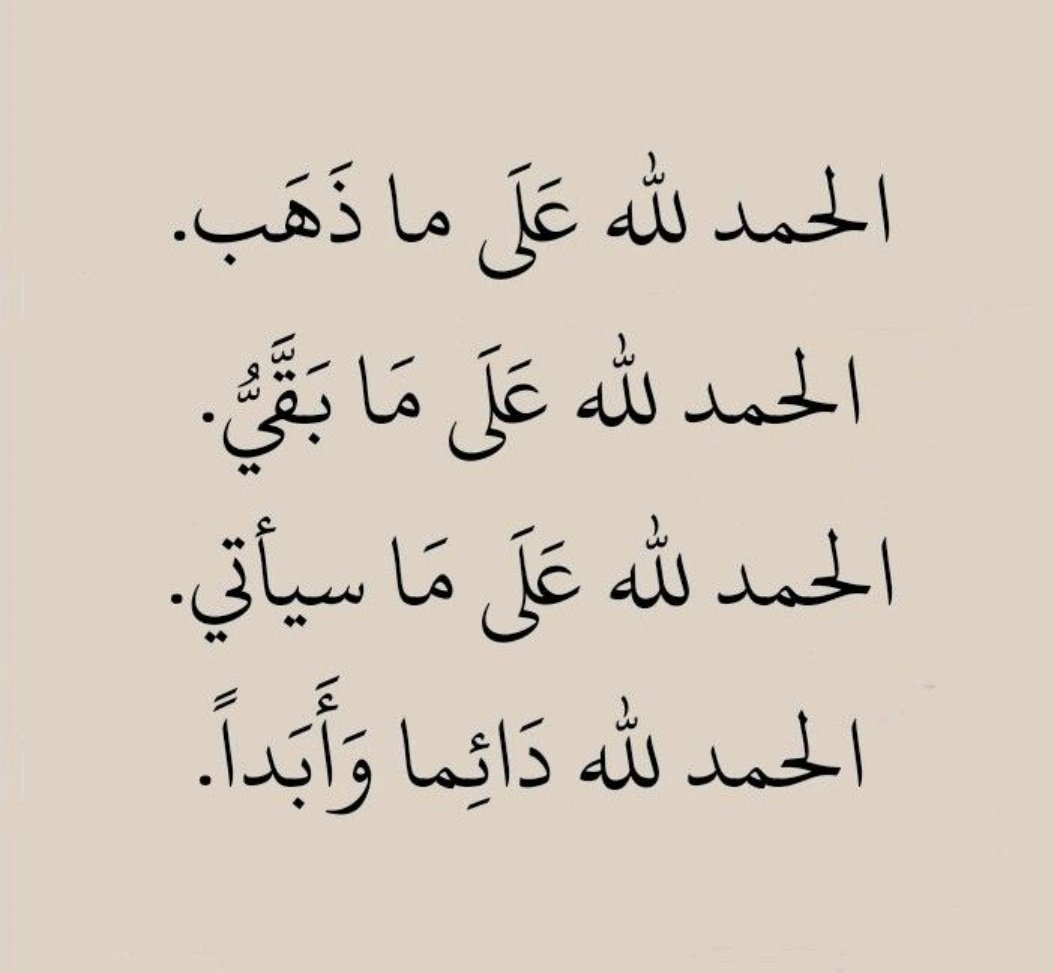 الحمد لله عَلَى ما ذَهَب.
الحمد لله عَلَى مَا بَقَّيُّ.
الحمد لله عَلَى مَا سيأتي.
الحمد لله دَائِما وَأَبَداً.